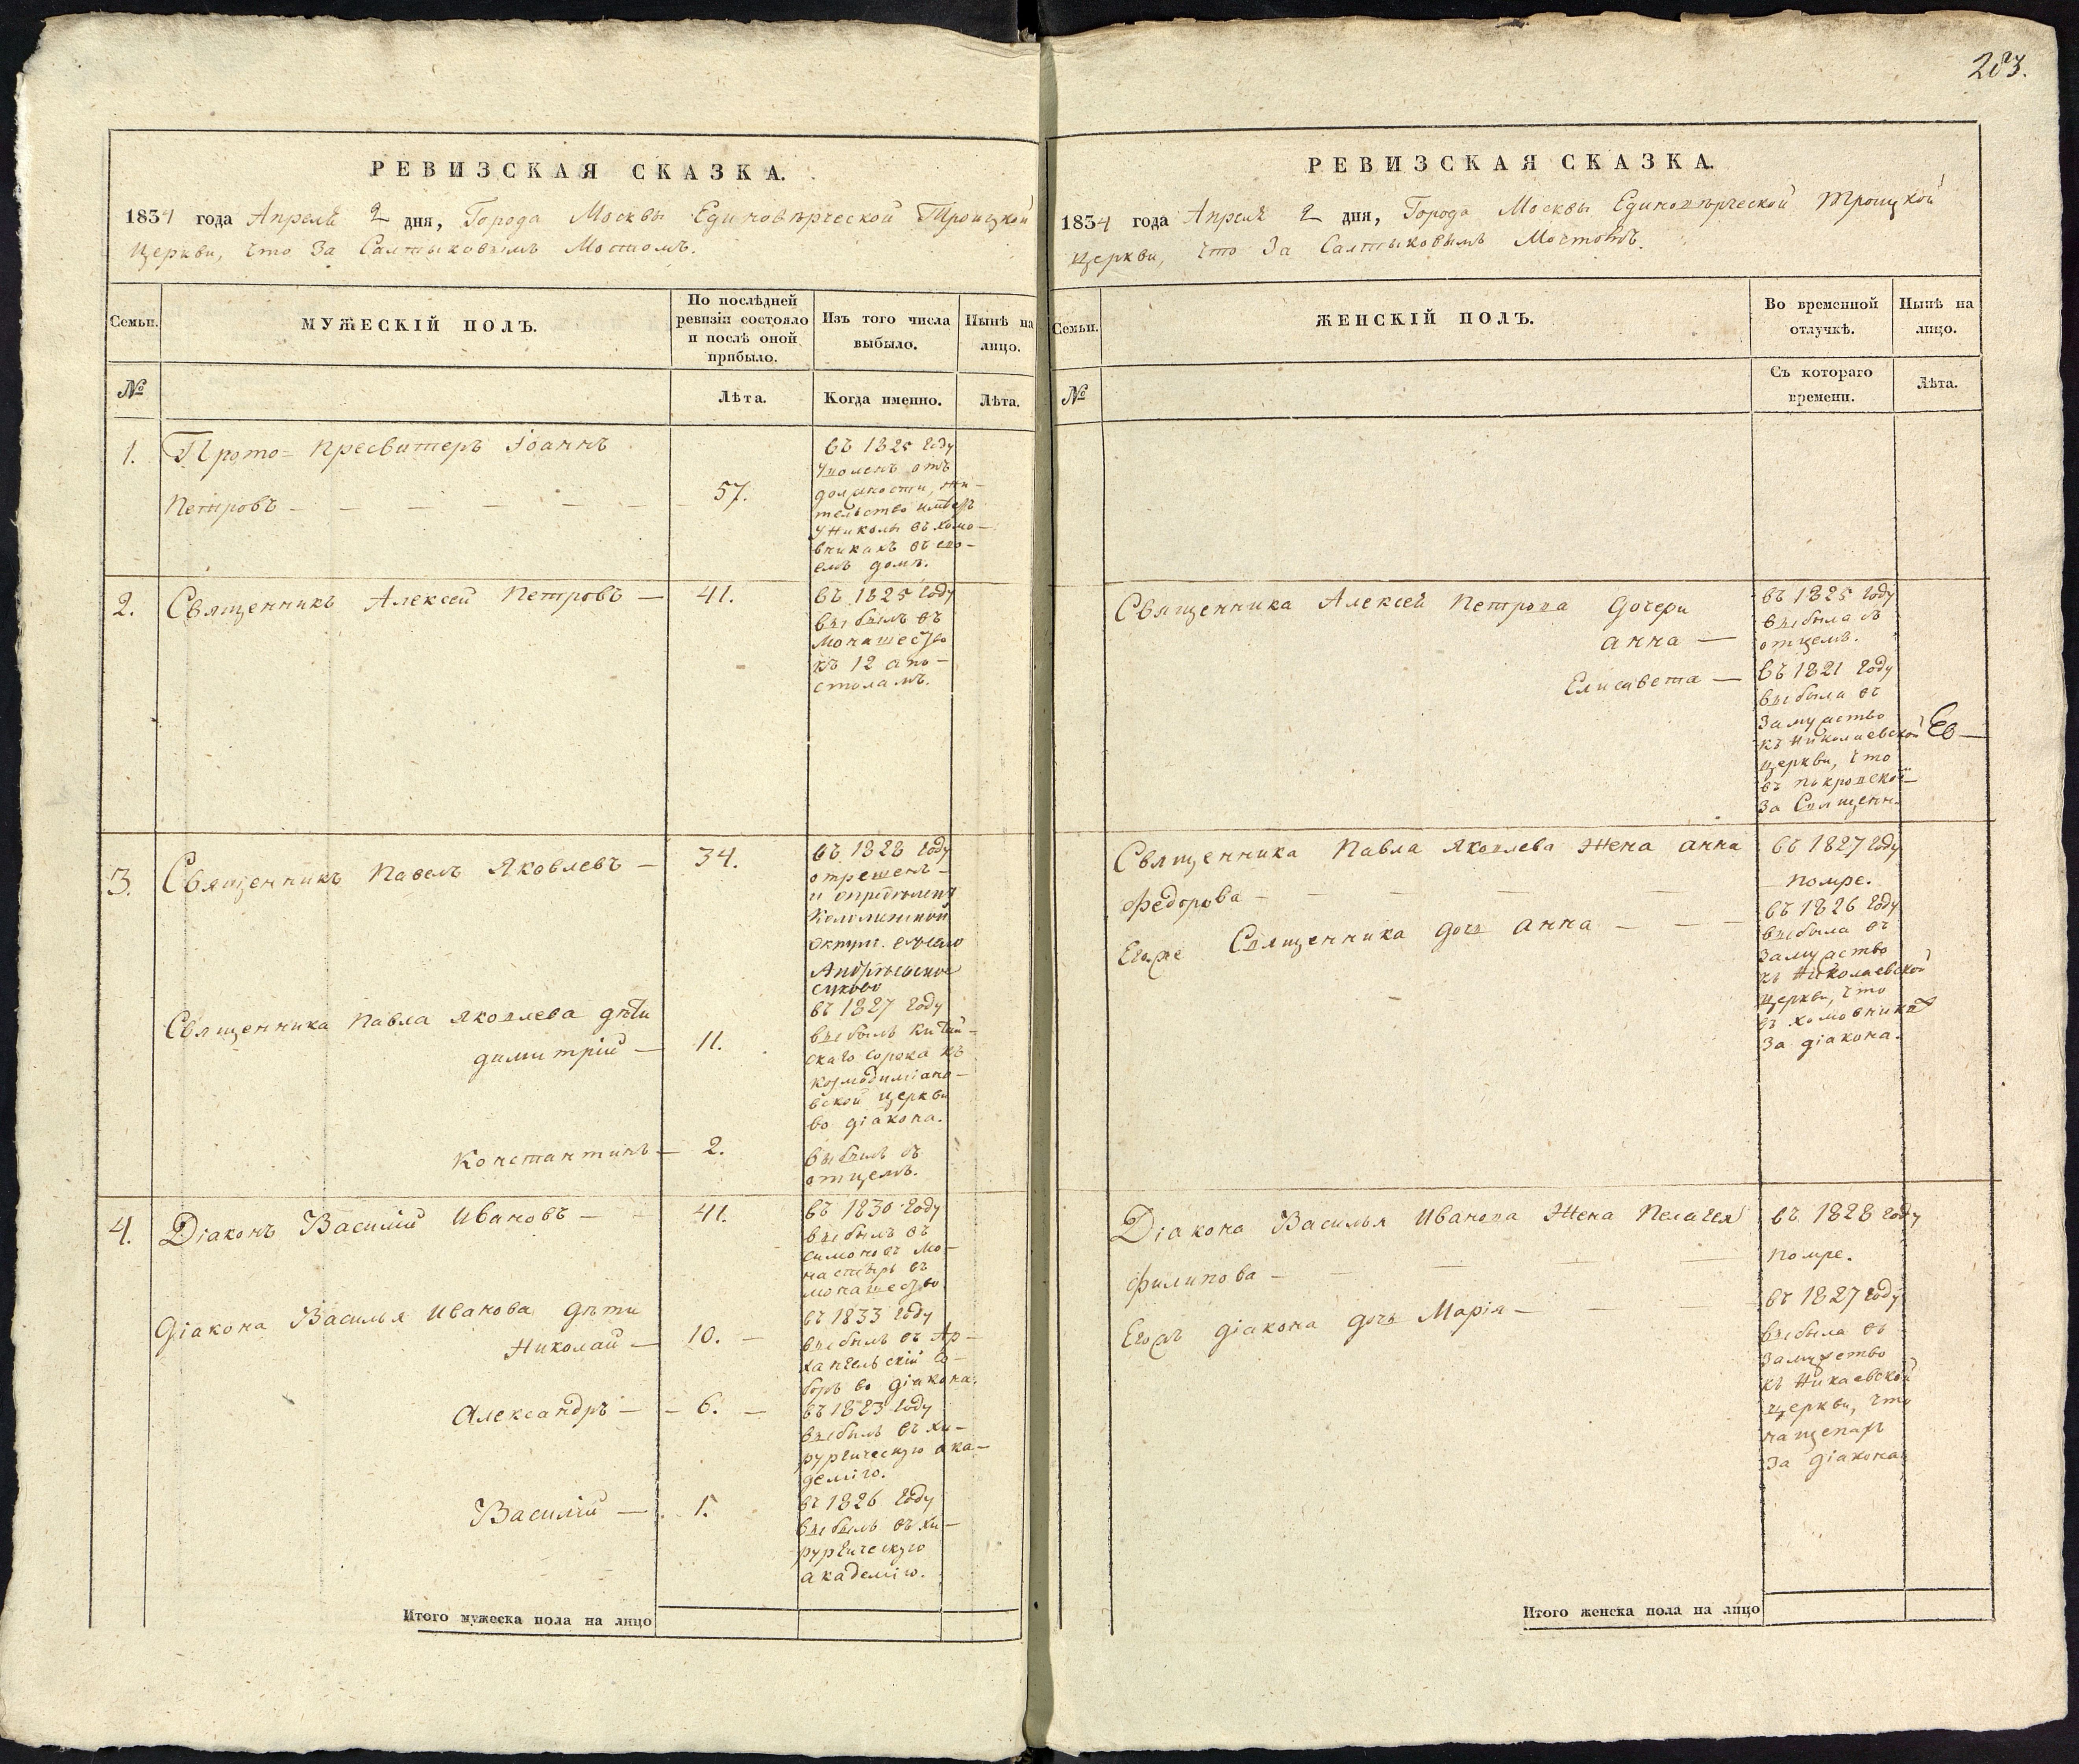 РЕВИЗСКАЯ СКАЗКА.
1834 года Апреля 2 дня, Города Москвы Единовѣрческой Троицкой
Церкви, что За Салтыковымъ Мостомъ.
Семьи.
МУЖЕСКІЙ ПОЛЪ.
По послѣдней
ревизіи состояло
и послѣ оной
прибыло.
Изъ того числа
выбыло.
Нынѣ на
лицо.
№
Лѣта.
Когда именно.
Лѣта.
1.
Прото= пресвитеръ Іоаннъ
Петровъ
57.
въ 1825 году
уволенъ отъ
должности, жи-
тельство имѣетъ
у Николы въ хамо-
вникахъ въ сво-
емъ домѣ.
2.
Священникъ Алексей Петровъ —
41.
въ 1825 году
выбылъ въ
монашество
къ 12 апо-
столамъ.
3.
Священникъ Павелъ Яковлевъ —
34.
въ 1828 году
отрешенъ
и определенъ
Коломенской
округи въ село
Андреевское
Священника Павла Яковлева дѣти
димитрій —
11.
въ 1827 году
выбылъ китай-
скаго сорока къ
козмодиміано-
вской церкви
во діакона.
Константинъ —
2.
выбылъ съ
отцемъ.
4.
Діаконъ Василій Ивановъ —
41.
въ 1830 году
выбылъ въ
симоновъ мо-
настырь въ
монашество.
діакона Василья Иванова дѣти
Николай —
10. —
въ 1833 году
выбылъ въ Ар-
хангельскій со-
боръ во діакона.
Александръ —
6. —
въ 1823 году
выбылъ въ хи-
рургическую ака-
демію.
Василій —
1.
въ 1826 году
выбылъ въ хи-
рургическую
академію.
Итого мужеска пола на лицо
283.
РЕВИЗСКАЯ СКАЗКА.
1834 года Апреля 2 дня, Города Москвы Единовѣрческой Троицкой
церкви, что За Салтыковымъ Мостомъ.
Семьи.
ЖЕНСКІЙ ПОЛЪ.
Во временной
отлучкѣ.
Нынѣ на
лицо.
№
Съ котораго
времени.
Лѣта.
Священника Алексея Петрова дочери
анна —
въ 1825 году
выбыла съ
отцемъ.
Елисавета —
въ 1821 году
выбыла въ
замужство
къ Николаевской
церкви, что
въ покровской
за Священн.
Священника Павла Яковлева жена анна
федорова —
въ 1827 году
помре.
Егоже Священника дочь анна —
въ 1826 году
выбыла въ
замужство
къ Николаевской
церкви, что
въ хамовникахъ
за діакона.
Діакона Василья Иванова жена Пелагея
филипова —
въ 1828 году
помре.
Егожъ діакона дочь Марія —
въ 1827 году
выбыла въ
замужство
къ Никаевской
церкви, что
на щепахъ
за діакона
Итого женска пола на лицо